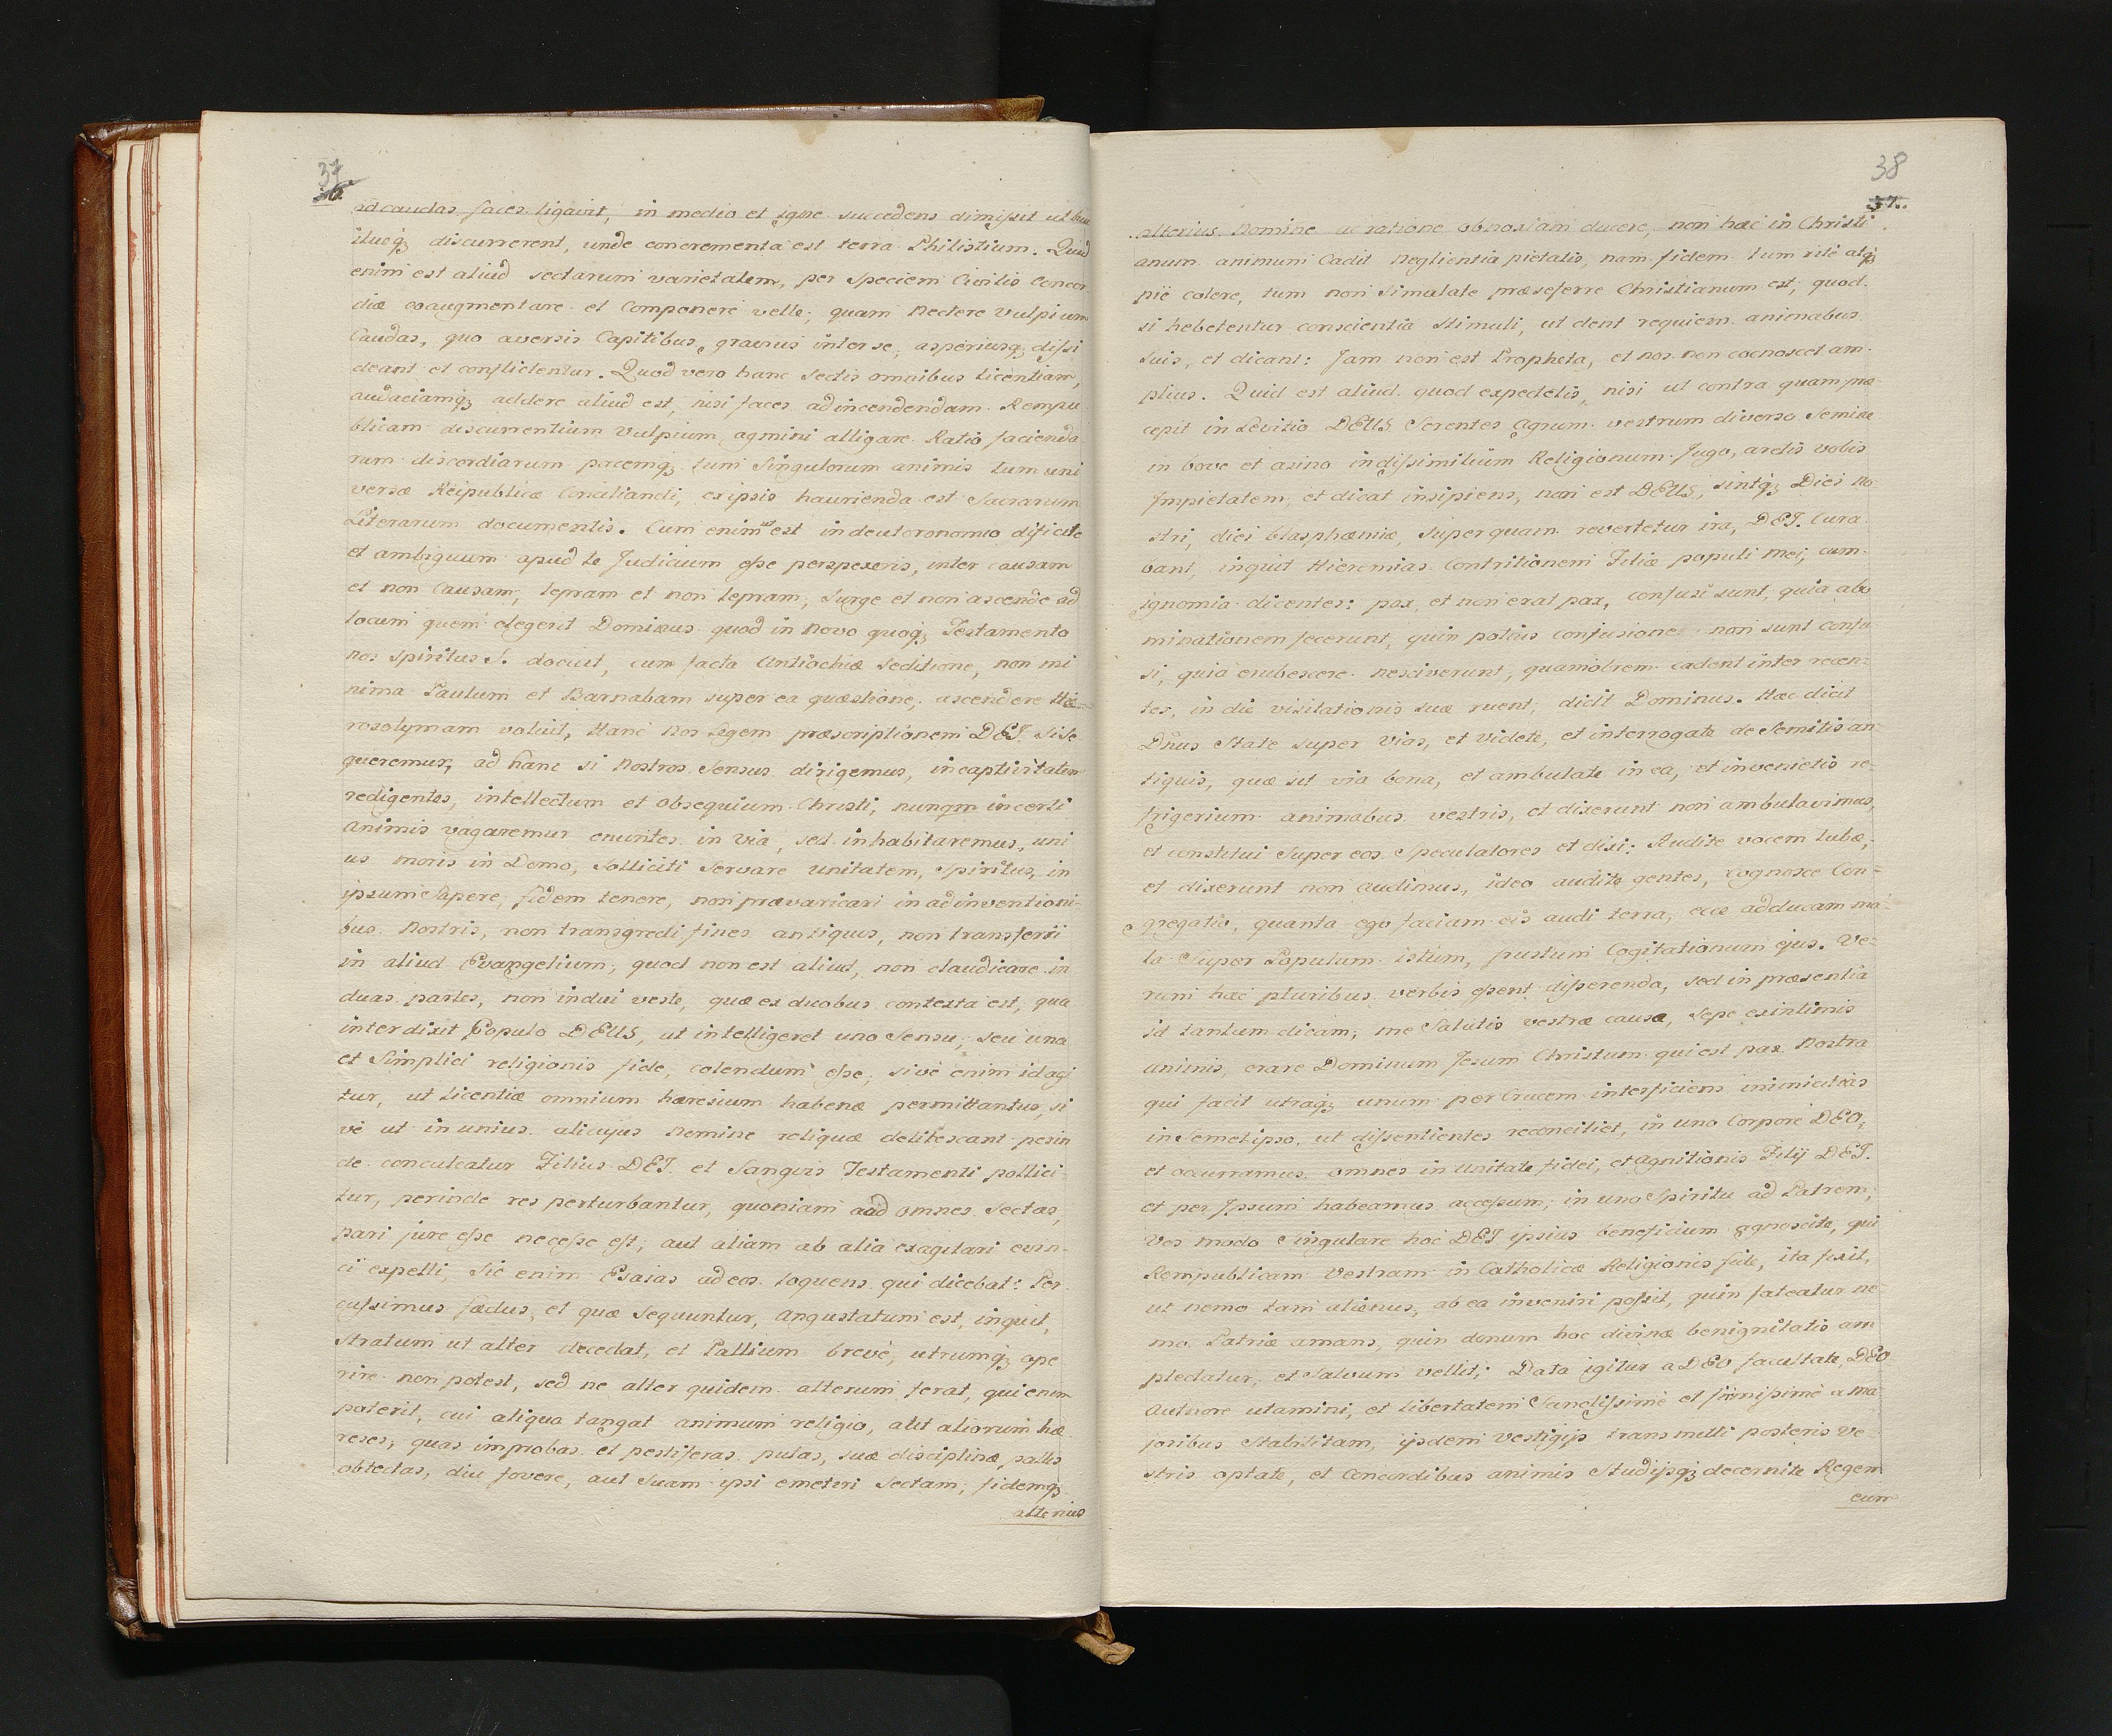 37
36.
ad caudas faces ligavit, in medio et igne succedens dimisit ut huc
illucq; discurrerent, unde concrementa est terra Philistium. Quid
enim est aliud sectarum varietatem, per speciem Civilis Concor
diæ coaugmentare et Componere velle; quam Nectere Vulpium
Caudas, quo aversis Capitibus gravius inter se, asperiusq; dissi
deant et conflictentur. Quod vero hanc Sectis omnibus licentiam,
audaciamq; addere aliud est, nisi faces ad incendendam Rempu
blicam discurrentium Vulpium agmini alligare. Ratio facienda
rum discordiarum pacemq; tum Singulorum animis tum uni
versæ Reipublicæ Conciliandi, ex ipsis haurienda est Sacrarum
Literarum documentis. Cum enim ut est in deutoronomio dificile
et ambiguum apud te Judicium esse perspexeris, inter causam
et non Causam, lepram et non lepram, Surge et non ascende ad
locum quem elegerit Dominus quod in Novo quoq; Testamento
nos Spiritus S. docuit, cum facta Antiochiæ Seditione, non mi
nima Paulum et Barnabam super ea quæstione, ascendere Hie
rosolymam voluit, Hanc Nos Legem præscriptionem DEI Si se
queremur, ad hanc si Nostros Sensus dirigemus, in captivitatem
redigentes, intellectum et obsequium Christi, nunqm incerti
animis vagaremur enuntes in via, sed inhabitaremus, uni
us moris in Domo, Solliciti Servare Unitatem, Spiritus, in
ipsum Sapere, fidem tenere, non prævaricari in adinventioni-
bus Nostris, non transgredi fines antiquos, non transferri
in aliud Evangelium, quod non est aliud, non claudicare in
duas partes, non indui veste, quæ ex duobus contexta est, qua
interdixit Populo DEUS, ut intelligeret uno Sensu, seu una
et Simplici religionis fide, colendum esse, sive enim id agi
tur, ut Licentiæ omnium hæresium habenæ permittantur, si
ve ut in unius alicujus Nomine reliquæ delitescant perin
de conculcatur Filius DEI et Sanguis Testamenti pollici
tur, perinde res perturbantur, quoniam aud omnes Sectas,
pari jure esse necesse est, aut aliam ab alia exagitari evin-
ci expelli, Sic enim Esaias ad eos loquens qui dicebat: Per
cussimus fædus, et quæ Sequuntur, angustatum est, inquit,
Stratum ut alter decedat, et Pallium breve, utrumq; ope
rire non potest, sed ne alter quidem alterum ferat, qui enim
poterit, cui aliqua tangat animum religio, alit aliorum hæ
reses, quas improbas et pestiferas putas, suæ disciplinæ, sallis
obtectas, diu fovere, aut Suam ipsi emeteri Sectam, fidemq;
alterius
38
37.
alterius Nomine ac ratione obnoxiam ducere, non hæc in Christi
anum animum Cadit Neglientia pietatis, nam fidem tum rite atq;
pie colere, tum non Simulate præseferre Christianum est, quod
si hebetentur conscientia Stimuli, ut dent requiem animabus
Suis, et dicant: Jam non est Propheta, et nos non cocnoscet am
plius. Quid est aliud quod expectetis, nisi ut contra quam præ
cepit in Levitio DEUS Serentes Agrum vestrum diverso Semine
in bove et asino indissimilium Religionum Jugo, aretis vobis
Impietatem, et dicat insipiens, non est DEUS, sintq; Diei No
stri, diei blasphæmiæ, Super quam revertetur ira, DEI. Cura
vant, inquit Hieremias Contritionem Filiæ populi mei, cum
ignomia dicentes: pax, et non erat pax, confusi sunt, quia abo
minationem fecerunt, quin potius confusione non sunt confu
si, quia erubescere nesciverunt, quamobrem cadent inter recen-
tes, in die visitationis suæ ruent, dicit Dominus. Hæc dicit
Dnus State super Vias, et Videte, et interrogate de Semitis an
tiquis, quæ sit via bona, et ambulate in ea, et invenietis re-
frigerium animabus vestris, et dixerunt non ambulavimus,
et constitui Super eos Speculatores et dixi: Audite vocem tubæ,
et dixerunt non audimus, ideo audite gentes, cognosce Con-
gregatio, quanta ego faciam eis audi terra, ecce adducam ma
la Super Populum istum, fustum Cogitationum ejus. Ve-
rum hæc pluribus verbis essent disserenda, sed in præsentia
id tantum dicam, me Salutis vestræ causa, sepe exintimis
animis, orare Dominum Jesum Christum qui est pax Nostra
qui facit utraq; unum per Crucem interficiens inimicitias
in Semetipso, ut dissentientes reconciliet, in uno Corpore DEO,
et occurramus omnes in Unitate fidei, et Agnitionis Filij DEI.
et per Ipsum habeamus accessum, in uno Spiritu ad Patrem,
Vos modo Singulare hoc DEI ipsius beneficium agnoscite, qui
Rempublicam Vestram in Catholicæ Religionis fide, ita fixit,
ut nemo tam alienus, ab ea inveniri possit, quin fateatur ne
mo Patriæ amans, quin donum hoc divinæ benignitatis am
plectatur, et Salvum vellit; Data igitur a DEO facultate, DEO
Authore utamini, et libertatem Sanctissime et firmissime a ma
joribus Stabilitam, ijsdem Vestigijs transmitti posteris Ve
stris optate, et Concordibus animis Studijsq; decernite Regem
eum